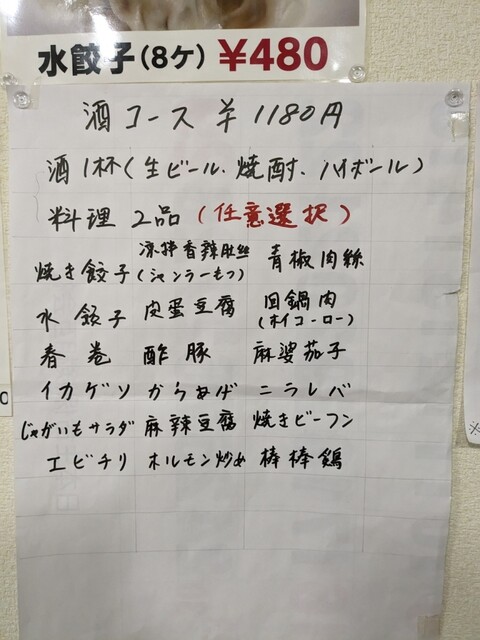 水餃子(8ケ) ¥480
酒コース ¥1180円
酒1杯(生ビール、焼酎、ハイボール)
料理 2品 (任意選択)
焼き餃子 涼拌香辣肚丝(シャンラーもつ) 青椒肉絲
水餃子 皮蛋豆腐 回鍋肉(ホイコーロー)
春巻 酢豚 麻婆茄子
イカゲソ からあげ ニラレバ
じゃがいもサラダ 麻辣豆腐 焼きビーフン
エビチリ ホルモン炒め 棒棒鶏
0
※